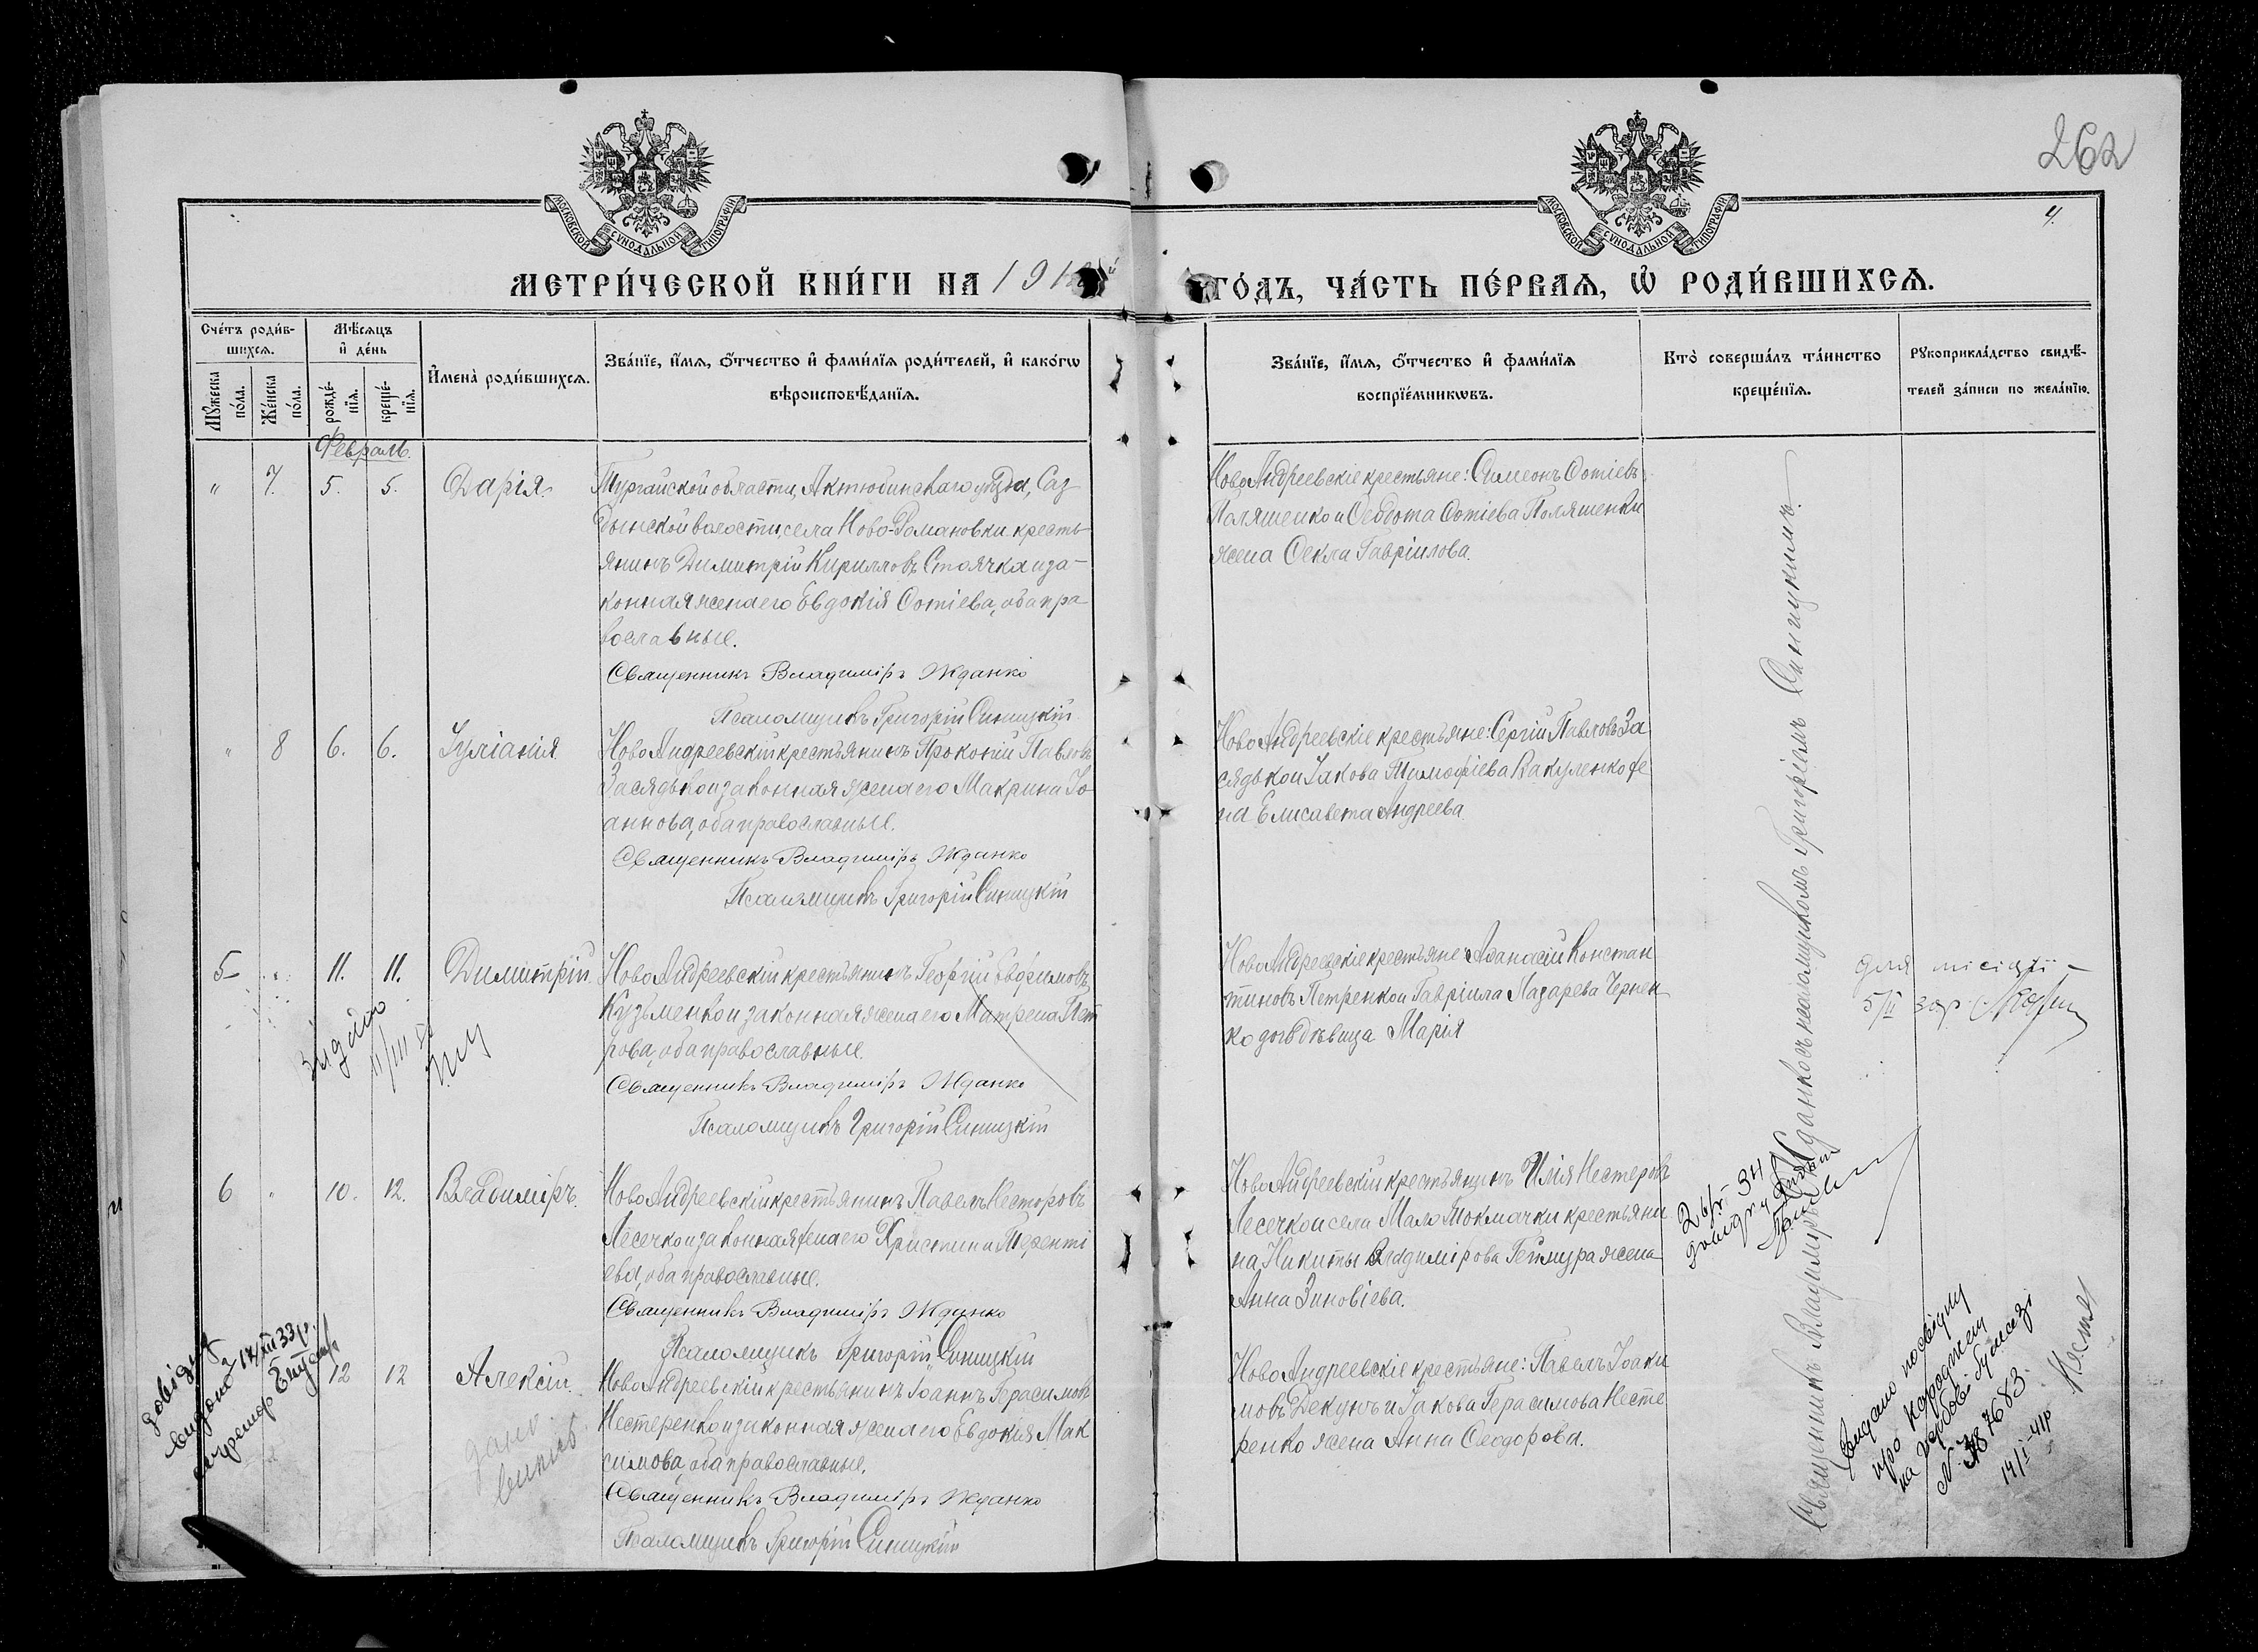 262
4.
МОСКОВСКОЙ СѴНОДАЛЬНОЙ ТИПОГРАФІИ
МОСКОВСКОЙ СѴНОДАЛЬНОЙ ТИПОГРАФІИ
МЕТРИ́ЧЕСКОЙ КНИ́ГИ НА 191
ГО́ДЪ, ЧА́СТЬ ПЕ́РВАѦ, Ѡ҆ РОДИ́ВШИХСѦ.
Сче́тъ роди́в-
шихсѧ.
Мꙋ́жеска по́ла.
Же́нска по́ла.
Мѣ́сѧцъ
и҆ де́нь
рожде́-нїѧ.
креще́-нїѧ.
И҆мена̀ роди́вшихсѧ.
Зва́нїе, и҆́мѧ, ѻ҆́тчество и҆ фами́лїѧ роди́телей, и҆ како́гѡ
вѣроисповѣ́данїѧ.
Зва́нїе, и҆́мѧ, ѻ҆́тчество и҆ фами́лїѧ
воспрїе́мникѡвъ.
Кто̀ соверша́лъ та́инство
креще́нїѧ.
Рꙋкоприкла́дство свидѣ́-
телей за́писи по жела́нїю.
Февраль.
" 7. 5. 5. Дарія.
Тургайской области, Актюбинскаго уѣзда, Саз
дынской волости, села Ново-Романовки кресть-
янинъ Димитрій Кирилловъ Стоячка и за-
конная жена его Евдокія Ѳотіева, оба пра
вославные.
Священникъ Владиміръ Жданко
Псаломщикъ Григорій Синицкій
НовоАндреевскіе крестьяне: Симеонъ Ѳотіевъ
Поляшенко и Ѳедота Ѳотіева Поляшенки
жена Ѳекла Гавріилова.
" 8 6. 6. Іуліанія.
НовоАндреевскій крестьянинъ Прокопій Павловъ
Засядько и законная жена его Макрина Іо
аннова, оба православные.
Священникъ Владиміръ Жданко
Псаломщикъ Григорій Синицкій
НовоАндреевскіе крестьяне: Сергій Павловъ За
сядько и Іакова Тимофіева Вакуленко же
на Елисавета Андреева
5 " 11. 11. Димитрій.
НовоАндреевскій крестьянинъ Георгій Евфимовъ
Кузьменко и законная жена его Матрена Пет
рова, оба православные.
Священникъ Владиміръ Жданко
Псаломщикъ Григорій Синицкій
НовоАндреевскіе крестьяне Аѳанасій Констан
тиновъ Петренко и Гавріила Лазарева Чернен
ко дочь дѣвица Марія
6 " 10. 12. Владиміръ.
НовоАндреевскій крестьянинъ Павелъ Несторовъ
Лесечко и законная жена его Христина Теренті
ева, оба православные.
Священникъ Владиміръ Жданко
Псаломщикъ Григорій Синицкій
НовоАндреевскій крестьянинъ Илія Нестеровъ
Лесечко и села Мало Токмачки крестьяни
на Никиты Владимірова Геймура жена
Анна Зиновіева.
12 12 Алексій.
НовоАндреевскій крестьянинъ Іоаннъ Герасимовъ
Нестеренко и законная жена его Евдокія Мак
симова, оба православные.
Священникъ Владиміръ Жданко
Псаломщикъ Григорій Синицкій
НовоАндреевскіе крестьяне: Павелъ Іоаки
мовъ Декунъ и Іакова Герасимова Несте
ренко жена Анна Ѳеодорова.
Священникъ Владиміръ Жданко съ псаломщикомъ Григоріемъ Синицкимъ.
для
5/II
26/ 34
довідку
видано
14/III 33 р.
Видано посвідку
про народжен
на гербові бумазі
№ 387683.
14/I 41р